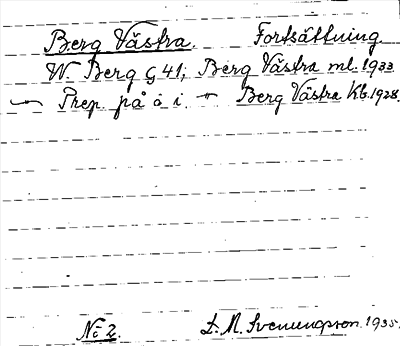 Berg Västra. Fortsättning
W. Berg G 41; Berg Västra ml. 1933
Prep. på ö i. Berg Västra Kb. 1928.
No 2. D. M. Svenungsson. 1935.